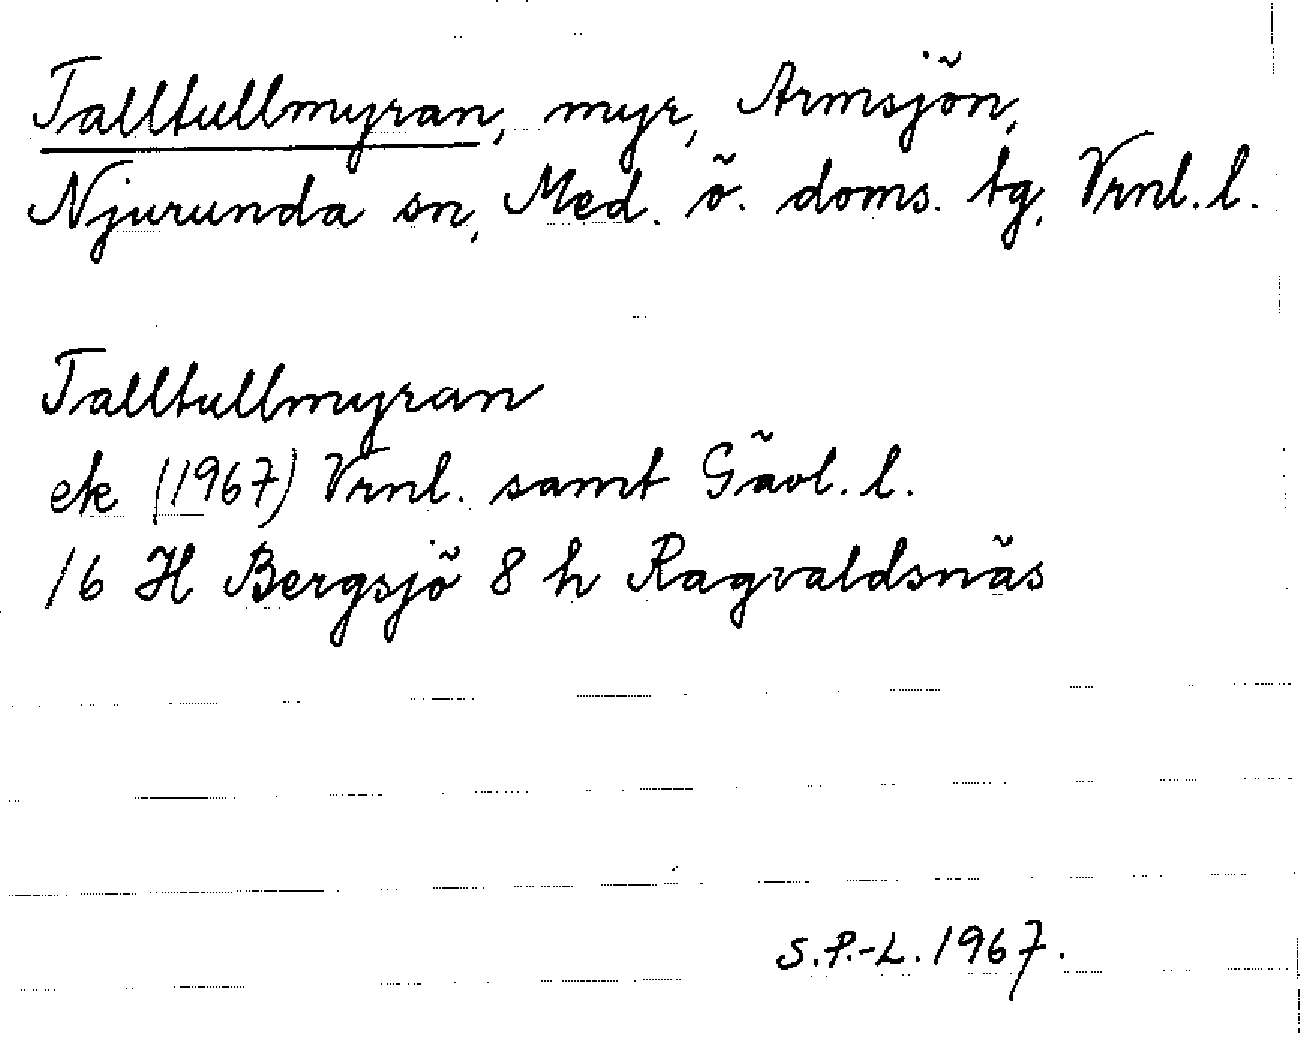 Talltullmyran, myr, Armsjön,
Njurunda sn, Med. ö. doms. tg, Vrnl. l.
Talltullmyran
ek (1967) Vrnl. samt Gävl. l.
16 H Bergsjö 8 h Ragvaldsnäs
S.P.-L. 1967.